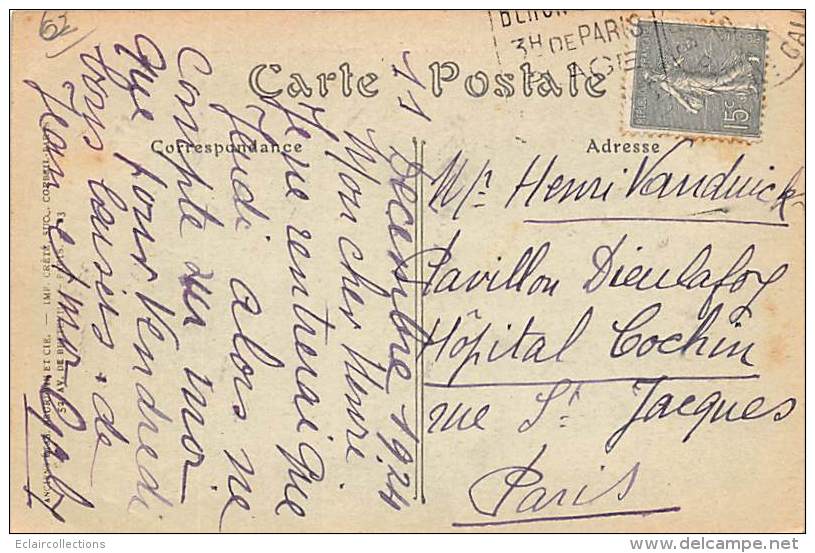 62
3H DE PARIS
15c
CAL
Carte Postale
Correspondance
Adresse
11 Decembre 1924
Mon cher Henri
Je ne rentrerai que
Jeudi alors ne
Compte sur moi
que pour Vendredi
bons baisers de
Jean et
Mr Henri Vanduick
Pavillon Dieulafoy
Hôpital Cochin
rue St Jacques
Paris
ET CIE. — IMP. CRÉTÉ, SUC., CORBEIL-PARIS
Eclaircollections
www.delcampe.net